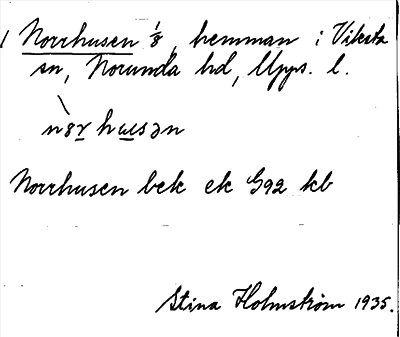 1 Norrhusen 1/8, hemman i Viksta
sn, Norunda hd, Upps. l.
Norrhusen bek ek G92 kb
Stina Holmström 1935.